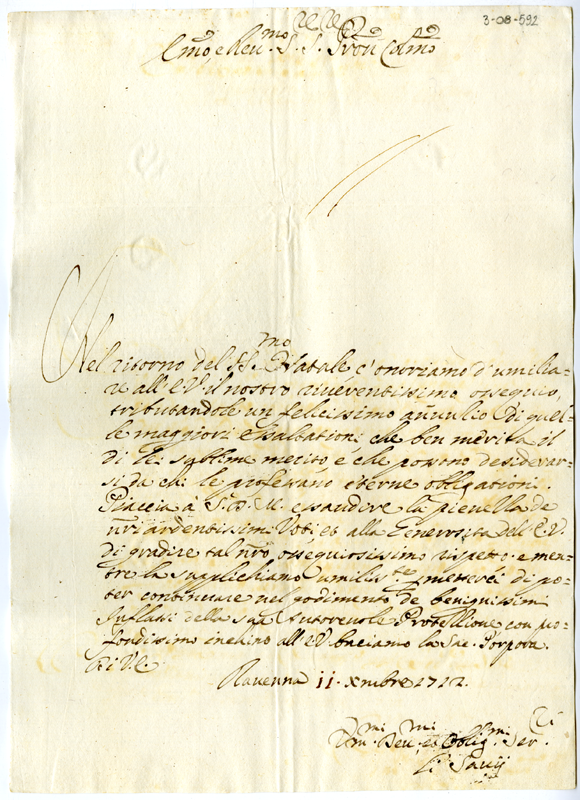 3-08-592
Emo, e Reu.mo S. S. Pron Colmo
Nel ritorno del SS.mo Natale c'onoriamo d'umilia=
re all'E.V. il nostro riuerentissimo ossequio,
tributandole un felicissimo annuncio di quel=
le maggiori esaltationi che ben merita il
di Lei sublime merito, e che possono desiderar=
si da chi le professano eterne obligationi.
Piaccia à S.D.M. essaudire la pienezza de
nri ardentissimi Voti, et alla Generosità dell'E.V.
di gradire tal nro ossequiosissimo rispetto. e men=
tre la supplichiamo umilis.te permetterci di po=
ter continuare nel godimento de benignissimi
Influssi della sua Autoreuole Protettione con pro=
fondissimo inchino all'E.V. baciamo la Sac. Porpora.
Di V.E.
Rauenna 11. Xmbre 1712.
Um.mi Deu.mi et Oblig.mi Ser.ri
Li Sauij